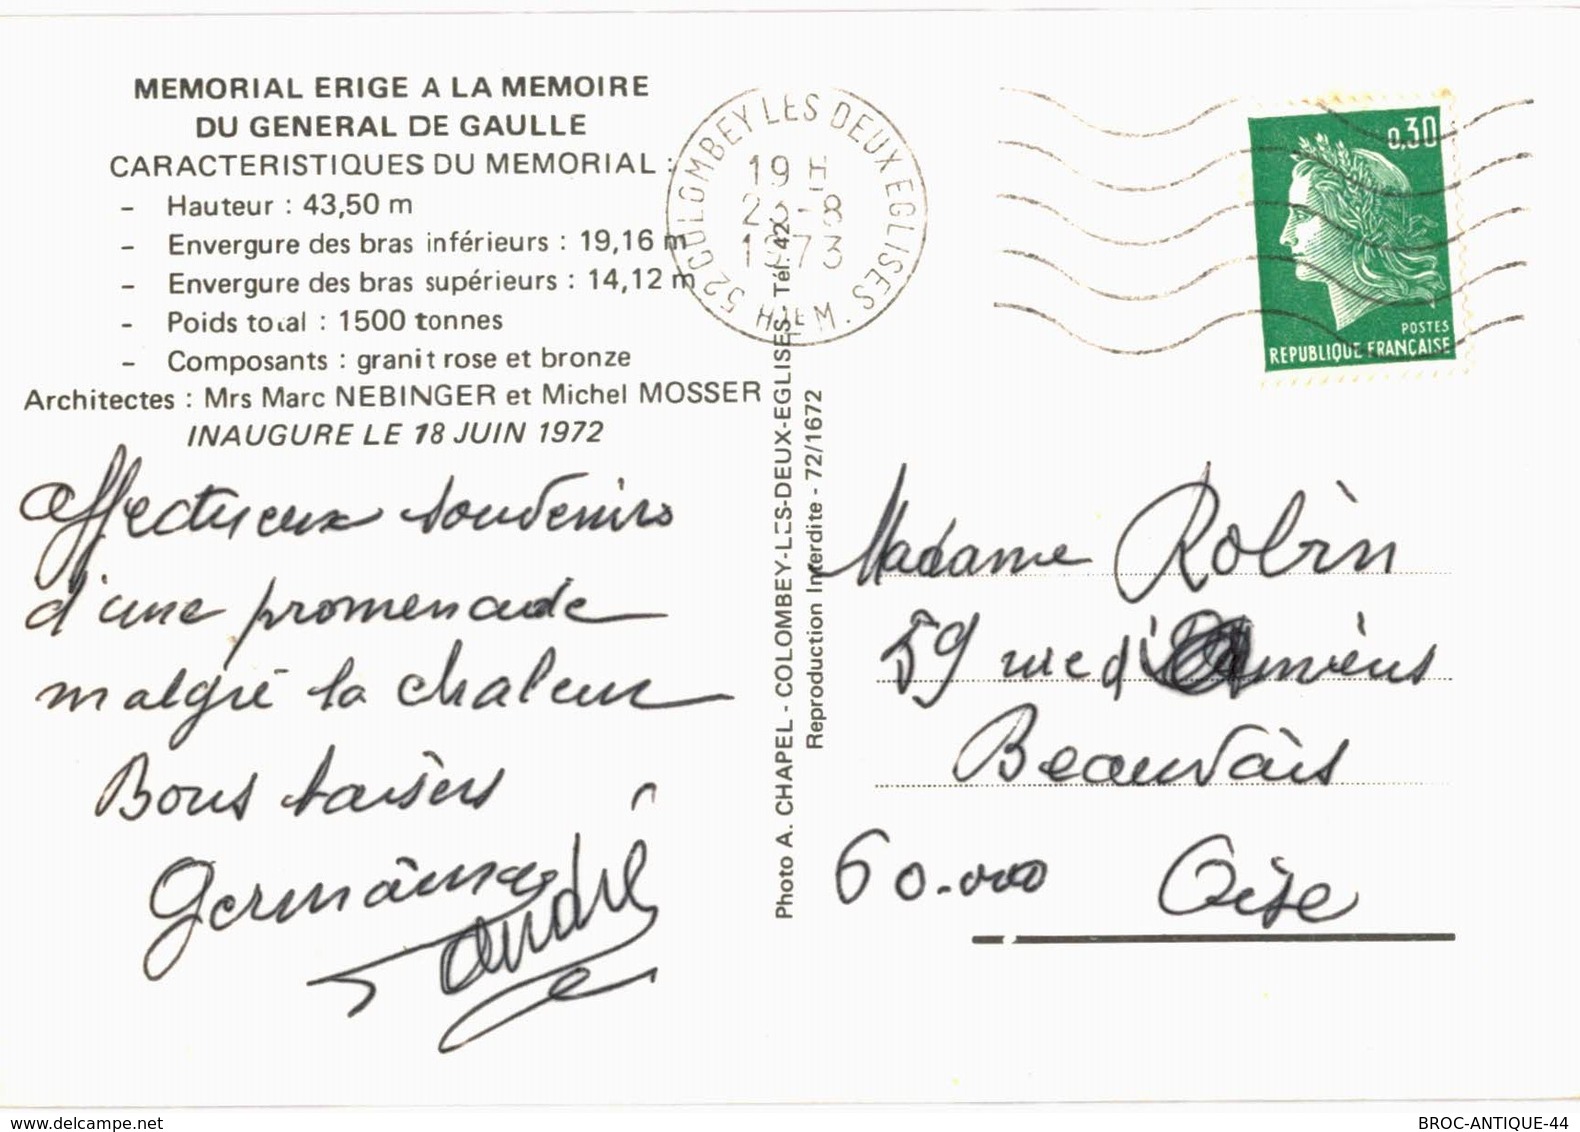 MEMORIAL ERIGE A LA MEMOIRE
DU GENERAL DE GAULLE
CARACTERISTIQUES DU MEMORIAL :
- Hauteur : 43,50 m
- Envergure des bras inférieurs : 19,16 m
- Envergure des bras supérieurs : 14,12 m
- Poids total : 1500 tonnes
- Composants : granit rose et bronze
Architectes : Mrs Marc NEBINGER et Michel MOSSER
INAUGURE LE 18 JUIN 1972
affectueux souvenirs
d'une promenade
malgré la chaleur
Bons baisers
Germaine
andré
Photo A. CHAPEL - COLOMBEY-LES-DEUX-EGLISES - Tél. 42
Reproduction Interdite - 72/1672
52 COLOMBEY LES DEUX EGLISES. Hte M.
19 H
23-8
1973
0,30
POSTES
REPUBLIQUE FRANÇAISE
Madame Robin
59 rue d'Amiens
Beauvais
60.000 Oise
BROC-ANTIQUE-44